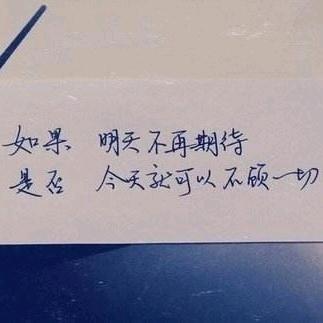 如果 明天不再期待
是否 今天就可以不顾一切